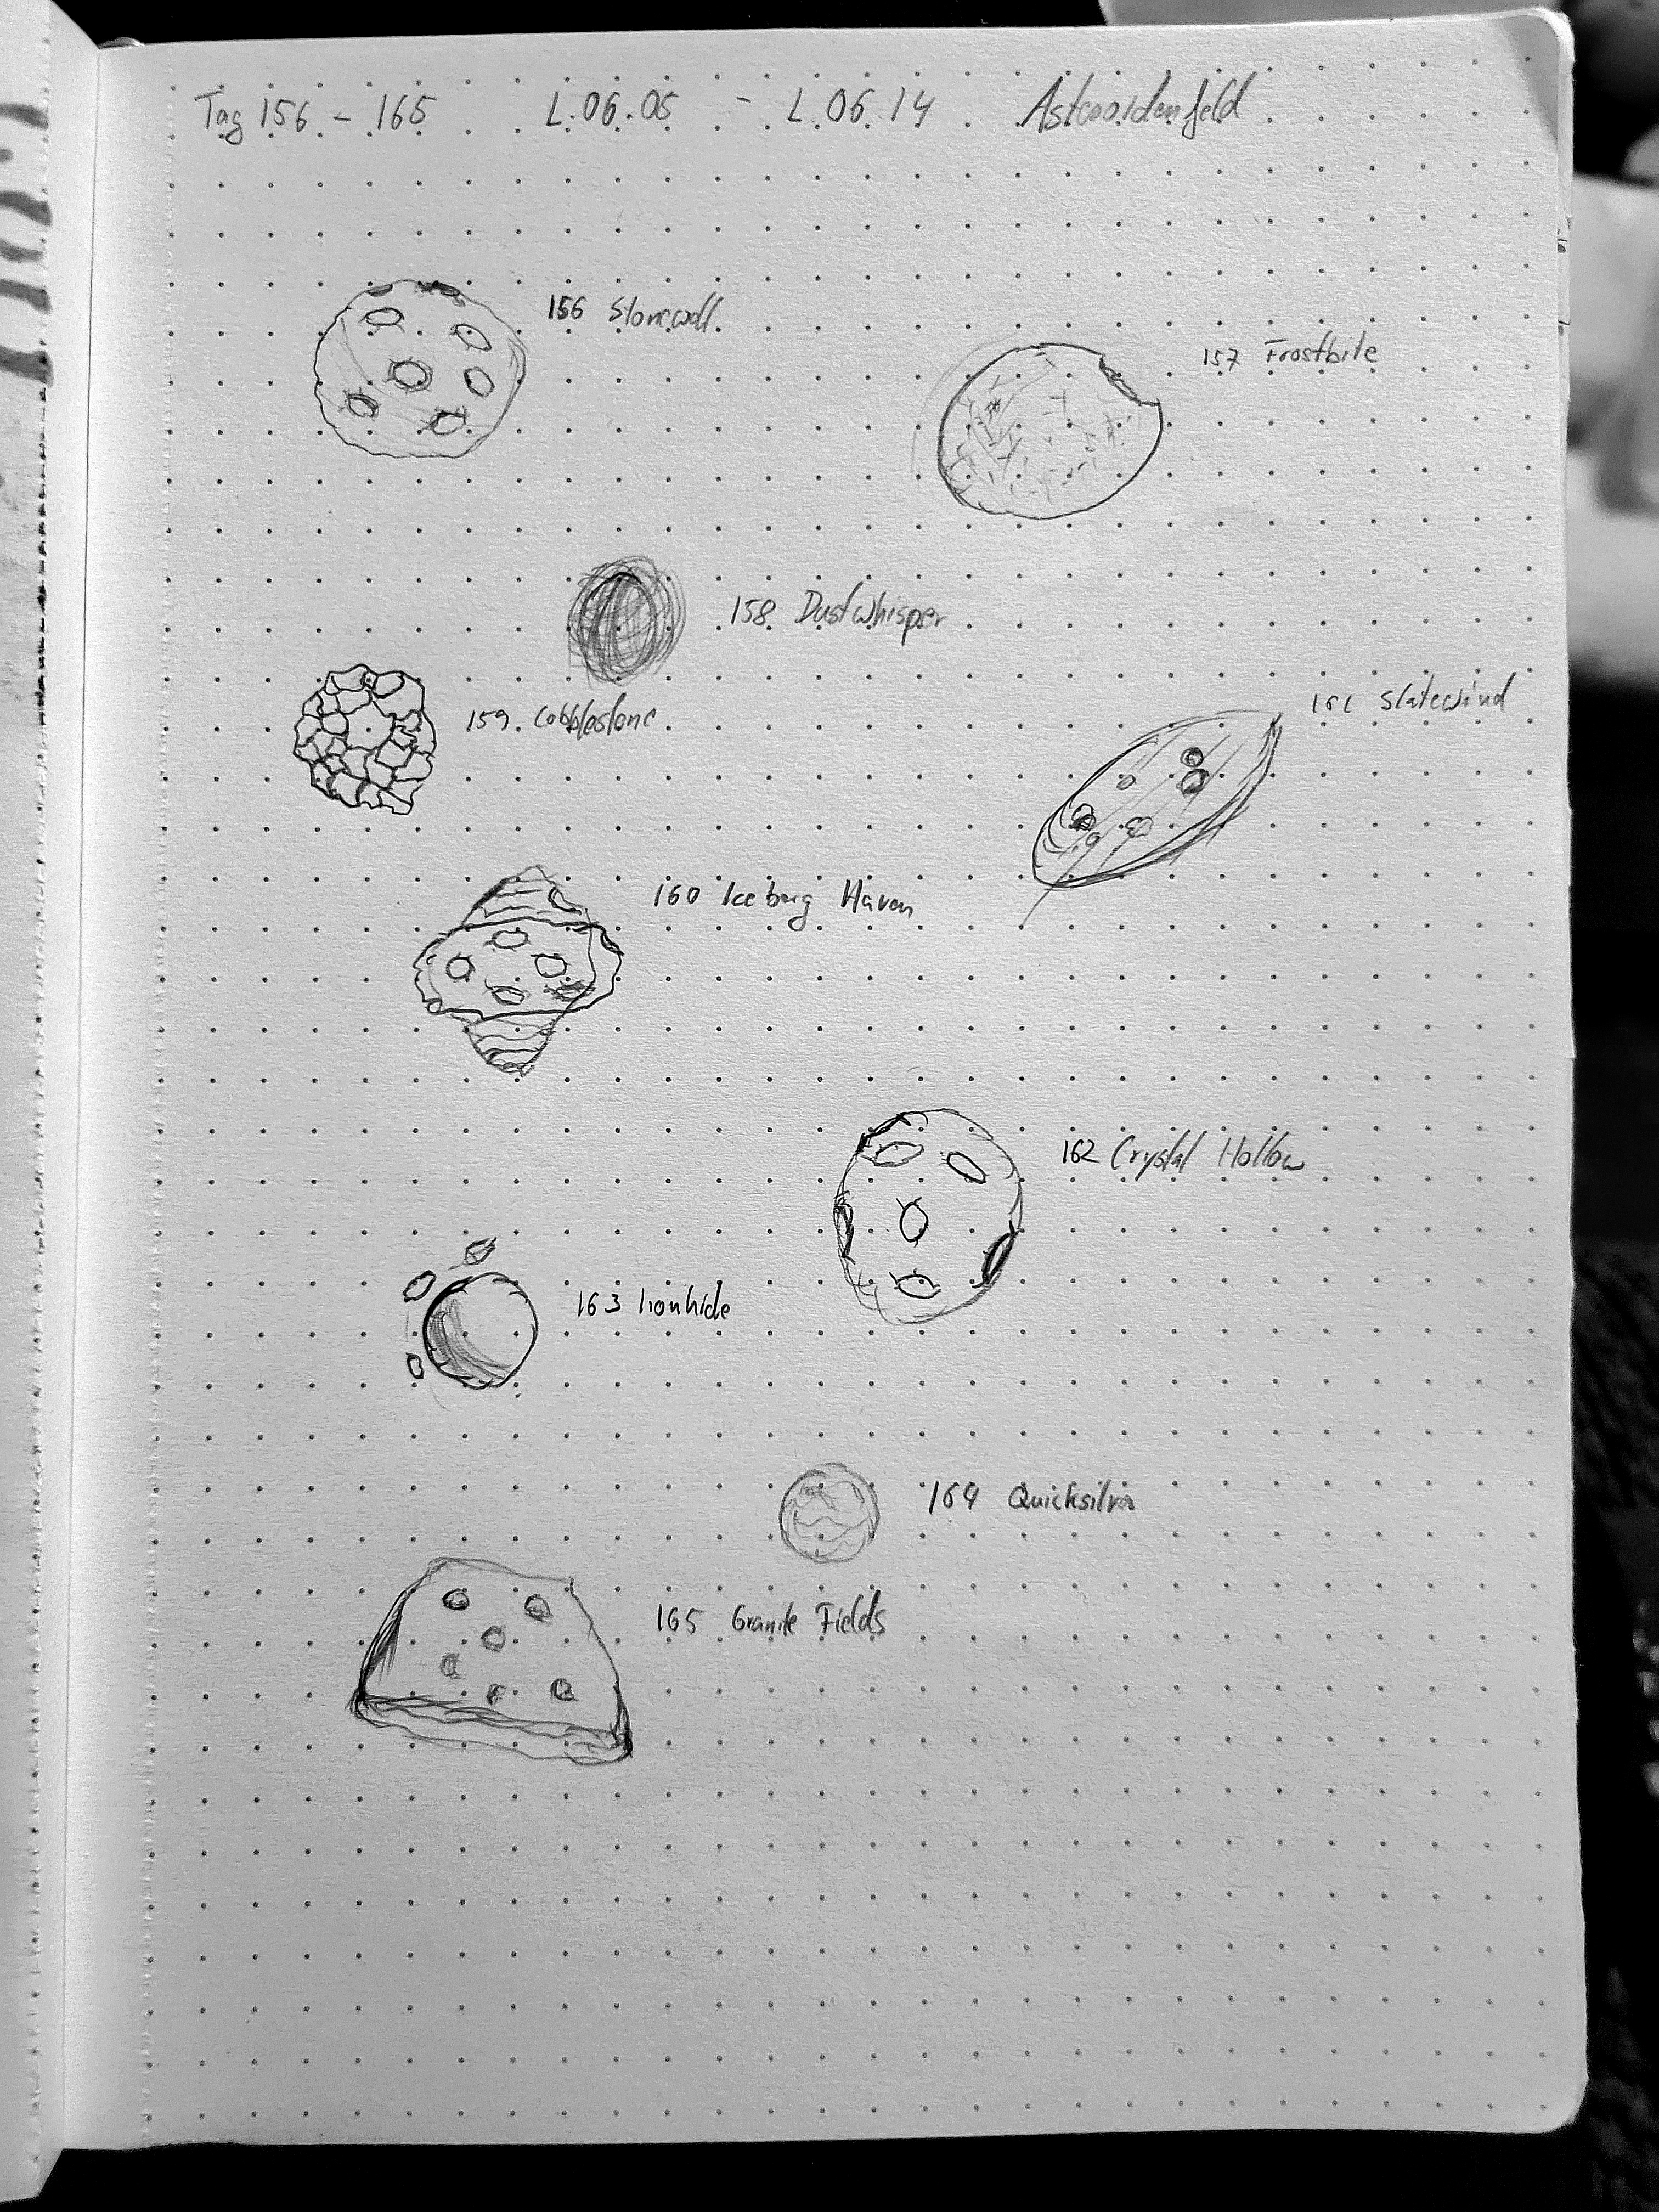 Tag 156 - 165 L.06.05 - L.06.14 Asteroidenfeld
156 Stonewall
157 Frostbite
158 Dustwhisper
159 Cobblestone
161 Slatewind
160 Iceberg Haven
162 Crystal Hollow
163 Ironhide
164 Quicksilver
165 Granite Fields